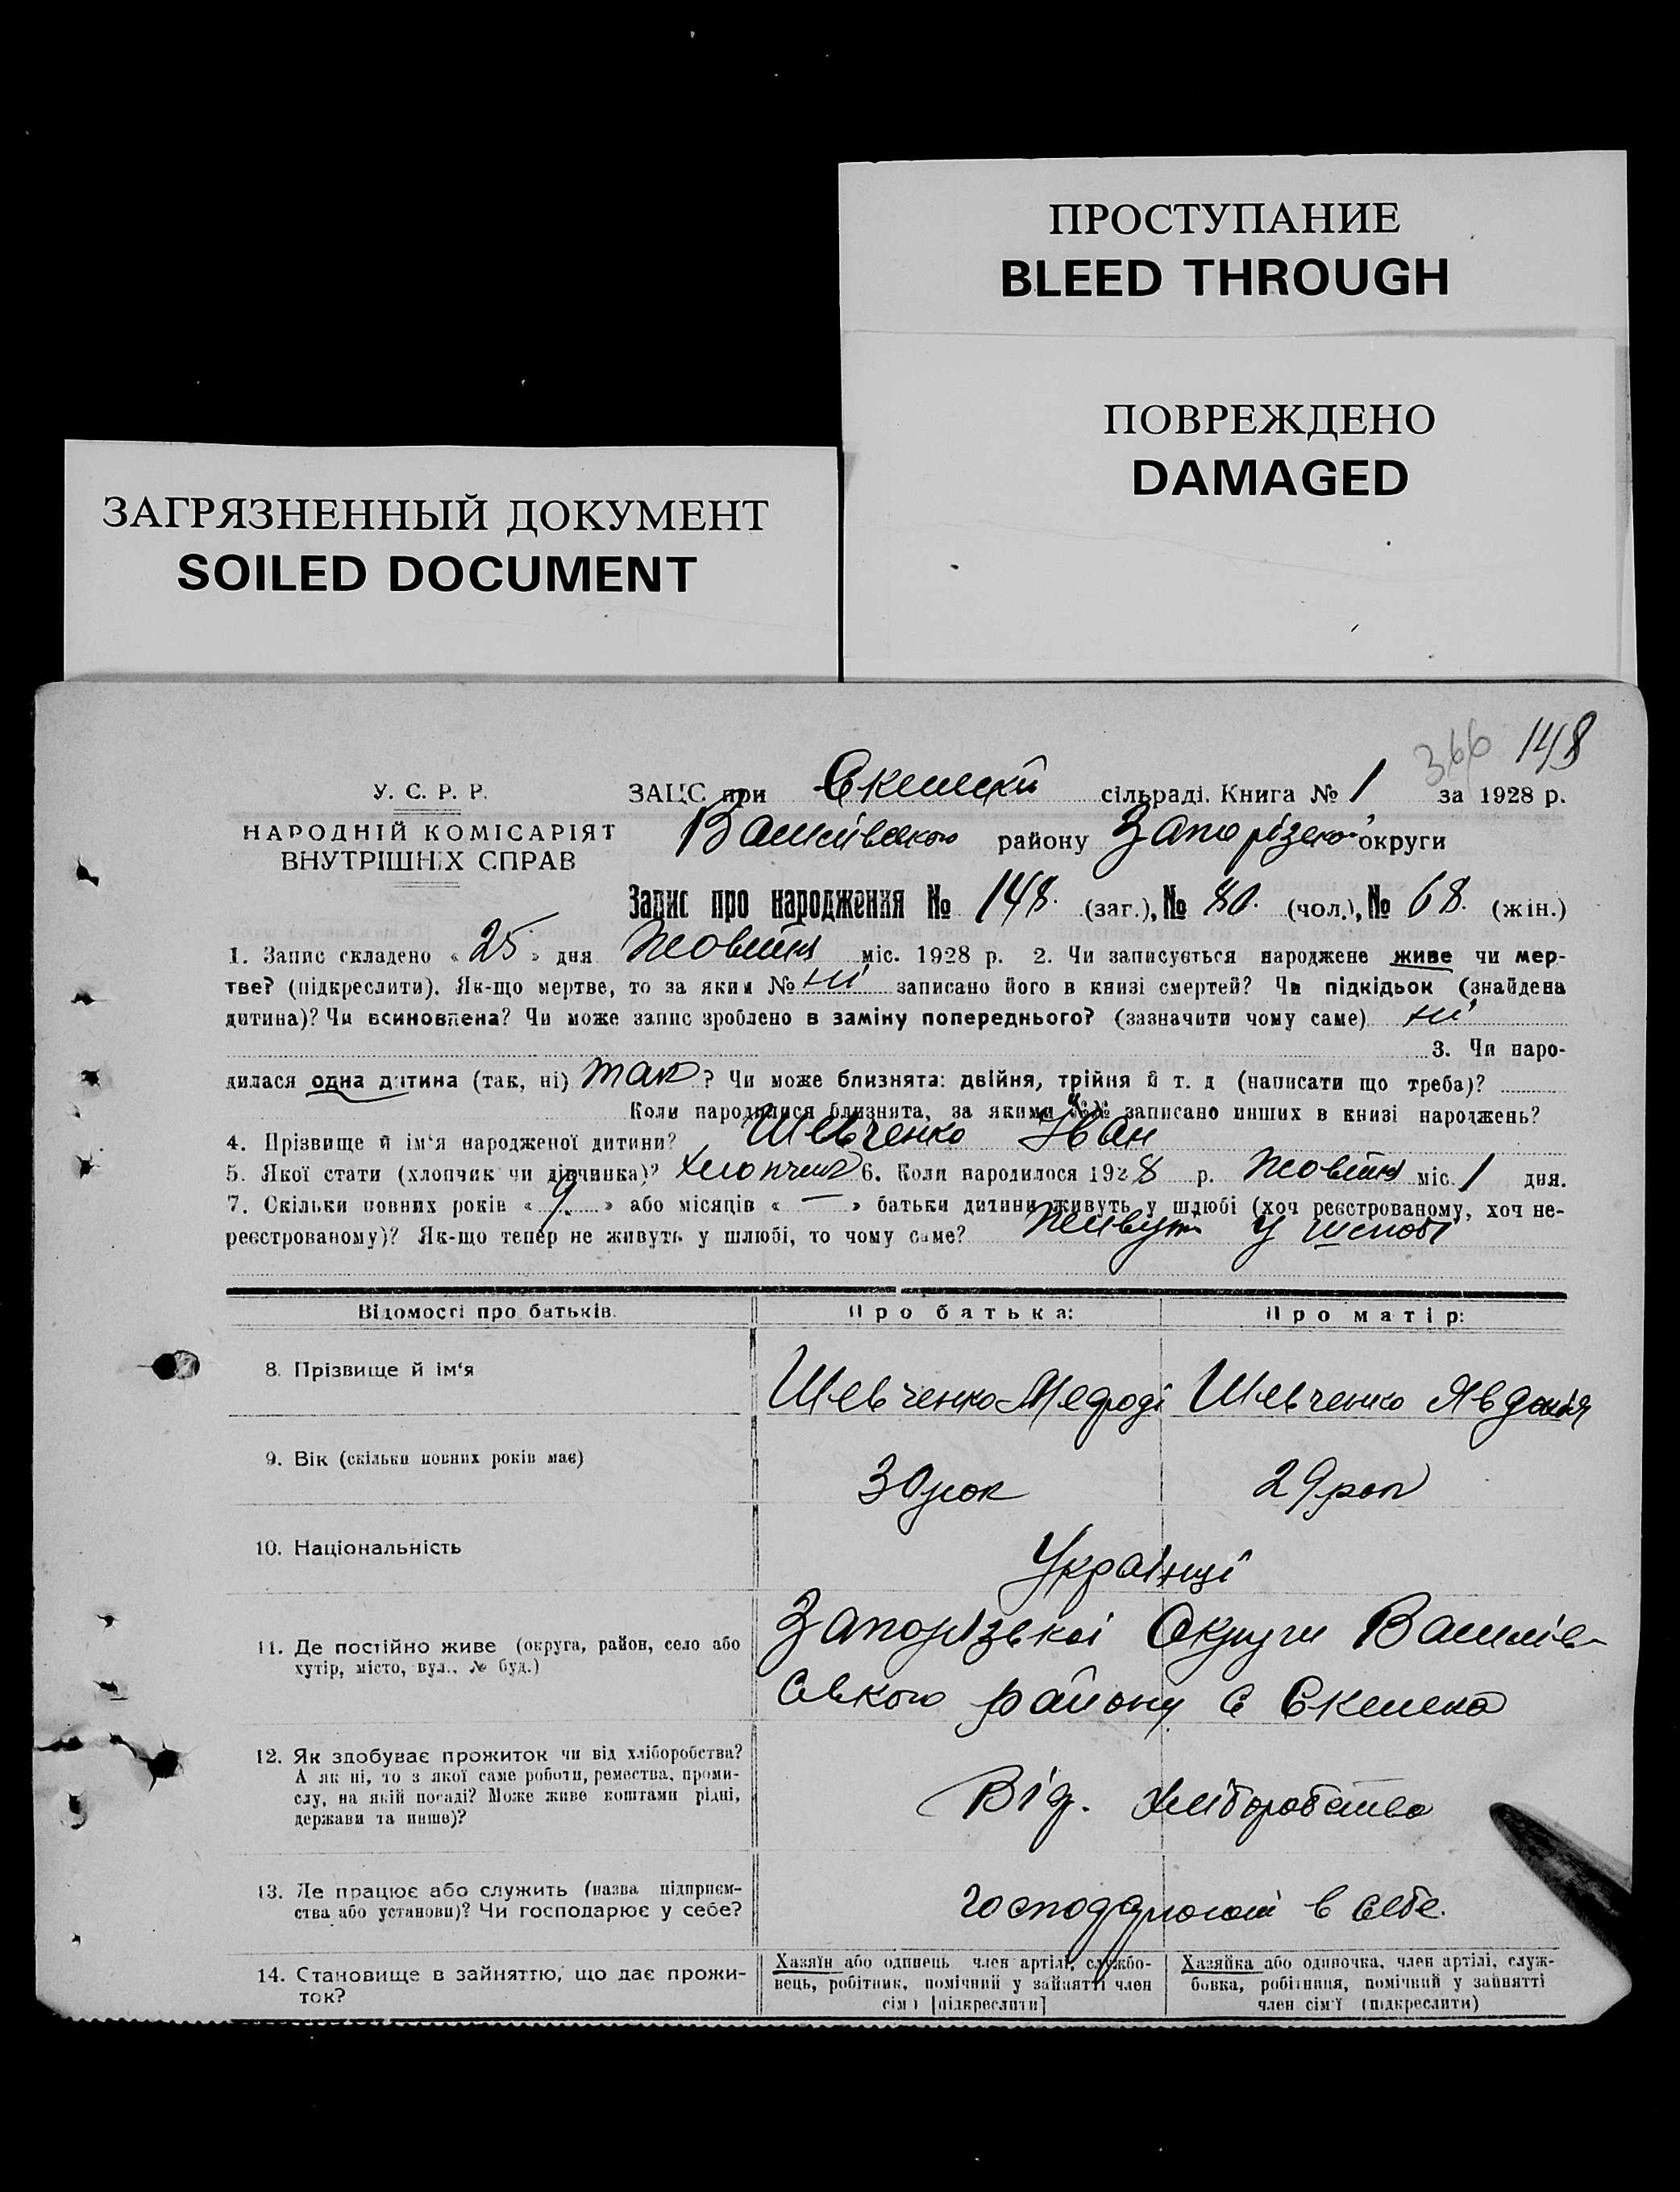 ПРОСТУПАНИЕ
BLEED THROUGH
ПОВРЕЖДЕНО
DAMAGED
ЗАГРЯЗНЕННЫЙ ДОКУМЕНТ
SOILED DOCUMENT
366 148
У. С. Р. Р.
НАРОДНІЙ КОМІСАРІЯТ
ВНУТРІШНІХ СПРАВ
ЗАЦС при Скельки сільраді. Книга № 1 за 1928 р.
Василівського району Запорізької округи
Запис про народження № 148. (заг.), № 80. (чол.), № 68. (жін.)
1. Запис складено « 25 » дня Жовтня міс. 1928 р. 2. Чи записується народжене живе чи мер-
тве? (підкреслити). Як-що мертве, то за яким № ні записано його в книзі смертей? Чи підкідьок (знайдена
дитина)? Чи всиновлена? Чи може запис зроблено в заміну попереднього? (зазначити чому саме) ні
3. Чи наро-
дилася одна дитина (так, ні) так? Чи може близнята: двійня, трійня й т. д (написати що треба)?
Коли народилися близнята, за якими №№ записано инших в книзі народжень?
4. Прізвище й ім'я народженої дитини? Шевченко Іван
5. Якої стати (хлопчик чи дівчинка)? хлопчик 6. Коли народилося 1928 р. Жовтня міс. 1 дня.
7. Скільки повних років « 9 » або місяців « — » батьки дитини живуть у шлюбі (хоч реєстрованому, хоч не-
реєстрованому)? Як-що тепер не живуть у шлюбі, то чому саме? Живуть у шлюбі
Відомості про батьків. Про батька: Про матір:
8. Прізвище й ім'я Шевченко Мефоді Шевченко Явдокія
9. Вік (скільки повних років має) 30 рок 29 рок
10. Національність Українці
11. Де постійно живе (округа, район, село або
хутір, місто, вул., № буд.)
Запорізькоі Округи Василів-
ського району с Скелька
12. Як здобуває прожиток чи від хліборобства?
А як ні, то з якої саме роботи, ремества, проми-
слу, на якій посаді? Може живе коштами рідні,
держави та инше)?
Від. Хліборобства
13. Де працює або служить (назва підприєм-
ства або установи)? Чи господарює у себе?
господарюють в себе.
14. Становище в зайняттю, що дає прожи-
ток?
Хазяїн або одинець член артілі, службо-
вець, робітник, помічний у зайнятті член
сім'ї [підкреслити]
Хазяйка або одиночка, член артілі, служ-
бовка, робітниця, помічний у зайнятті
член сім'ї (підкреслити)